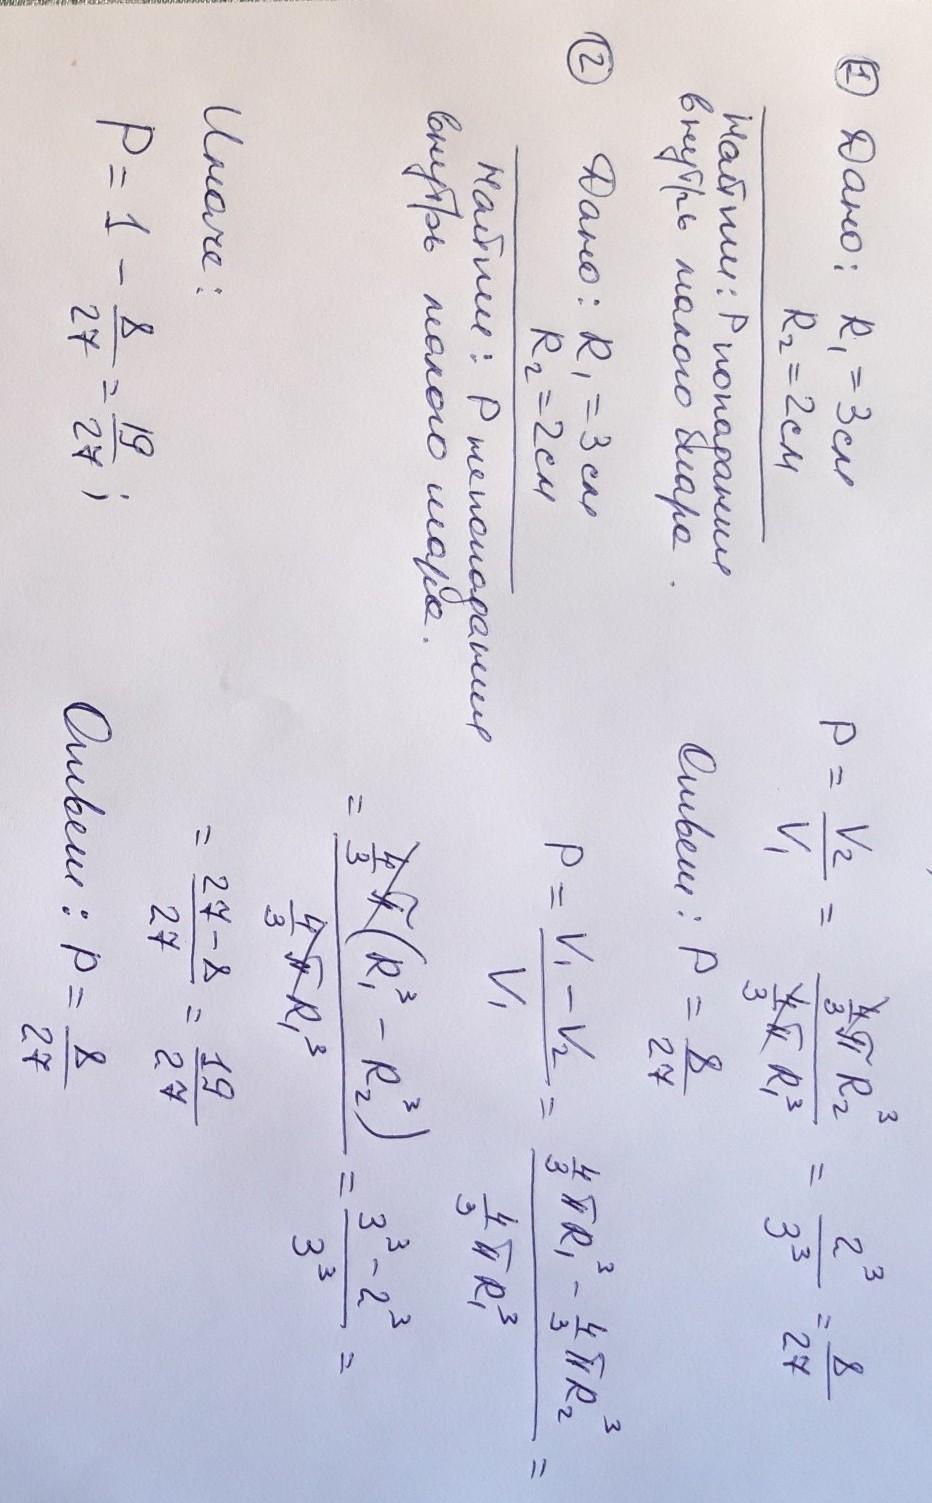 ① Дано: R₁ = 3 см
R₂ = 2 см
Найти: P попадания
внутрь малого шара.
P = V₂/V₁ = (4/3 π R₂³)/(4/3 π R₁³) = 2³/3³ = 8/27
Ответ: P = 8/27
② Дано: R₁ = 3 см
R₂ = 2 см
Найти: P непопадания
внутрь малого шара.
P = (V₁ - V₂)/V₁ = (4/3 π R₁³ - 4/3 π R₂³)/(4/3 π R₁³) =
= (4/3 π (R₁³ - R₂³))/(4/3 π R₁³) = (3³ - 2³)/3³ =
= (27 - 8)/27 = 19/27
Иначе:
P = 1 - 8/27 = 19/27;
Ответ: P = 8/27